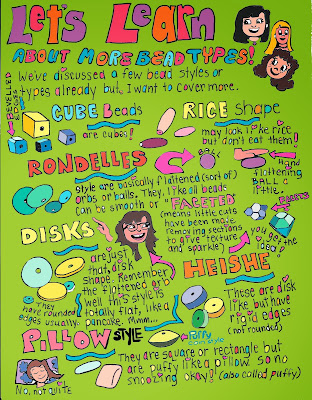 Let's Learn
ABOUT MORE BEAD TYPES!
We've discussed a few bead styles or
types already but I want to cover more.
BEVELLED
EDGES
CUBE Beads
are cubes!
RICE shape
may look like rice
but don't eat them!
RONDELLES
Hand
flattening
BALL a
little.
Style are basically flattened (sort of)
orbs or balls. They, like all beads
can be smooth or "FACETED"
(means little cuts
have been made
removing sections
to give texture
and sparkle)
FACETS
you get the
idea?
DISKS
are just
that, disk
shape. Remember
the flattened orb?
Well this style is
totally flat, like a
pancake. Mmm...
They
have rounded
edges usually.
HEISHE
These are disk
like but have
rigid edges
(not rounded)
PILLOW STYLE
Puffy
coin style
They are square or rectangle but
are puffy like a pillow. So no
snoozing okay! (also called puffy)
No, not quite